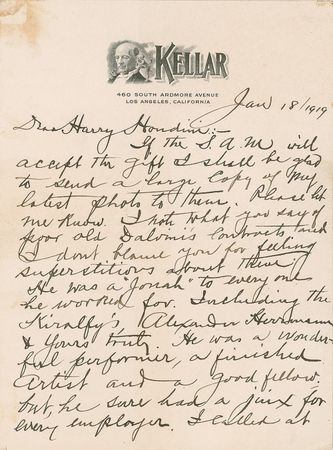 KELLAR
460 SOUTH ARDMORE AVENUE
LOS ANGELES, CALIFORNIA
Jan 18/1919
Dear Harry Houdini:-
If the S.A.M. will
accept the gift I shall be glad
to send a large copy of my
latest photo to them. Please let
me know. I note what you say of
poor old Contracts and
I dont blame you for feeling
superstitious about them,
He was a "Jonah" to every one
he worked for. Including the
Kiralfy's, Alexander Herrmann
& Yours truly. He was a wonder-
ful performer, a finished
Artist and a good fellow,
but, he sure had a jinx for
every employer. I called at